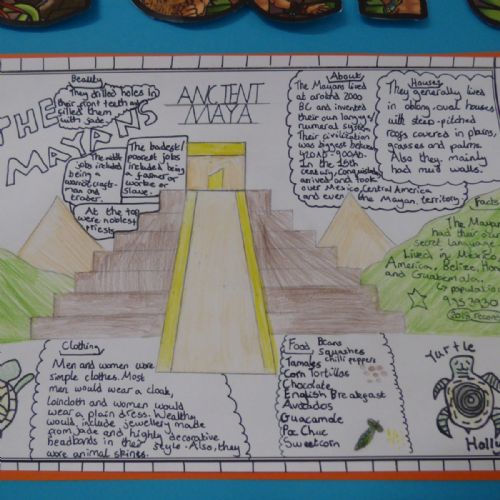 Beauty
They drilled holes in
their front teeth and
filled them
with jade.
THE
MAYANS
ANCIENT
MAYA
The middle
jobs included
being a
warrior, crafts-
man and
trader.
The badest/
poorest jobs
included being
a farmer or
worker or
slave.
At the top
were noblest
priests
About
The Mayans lived
at around 2000
BC and invented
their own language
numeral system.
Their civilization
was biggest between
420AD-900AD.
In the 15th
century, Conquistadors
arrived and took
over Mexico, Central America
and even the Mayan territory
Houses
They generally lived
in oblong, oval houses
with steep-pitched
roofs covered in plains,
grasses and palms.
Also they mainly
had mud walls.
Facts
The Mayans
had their own
secret language
Lived in Mexico,
America, Belize, Hon
and Guatemala.
population
2013 record
Clothing
Men and women wore
simple clothes. Most
men would wear a cloak,
loincloth and women would
wear a plain dress. Wealthy
would include jewellery made
from jade and highly decorative
headbands in their style. Also, they
wore animal skins.
Food
Beans
squashes
Tamales chilli peppers
Corn Tortillas
Chocolate
English Breakfast
Avocados
Guacamole
Poc Chuc
Sweetcorn
Turtle
Holly